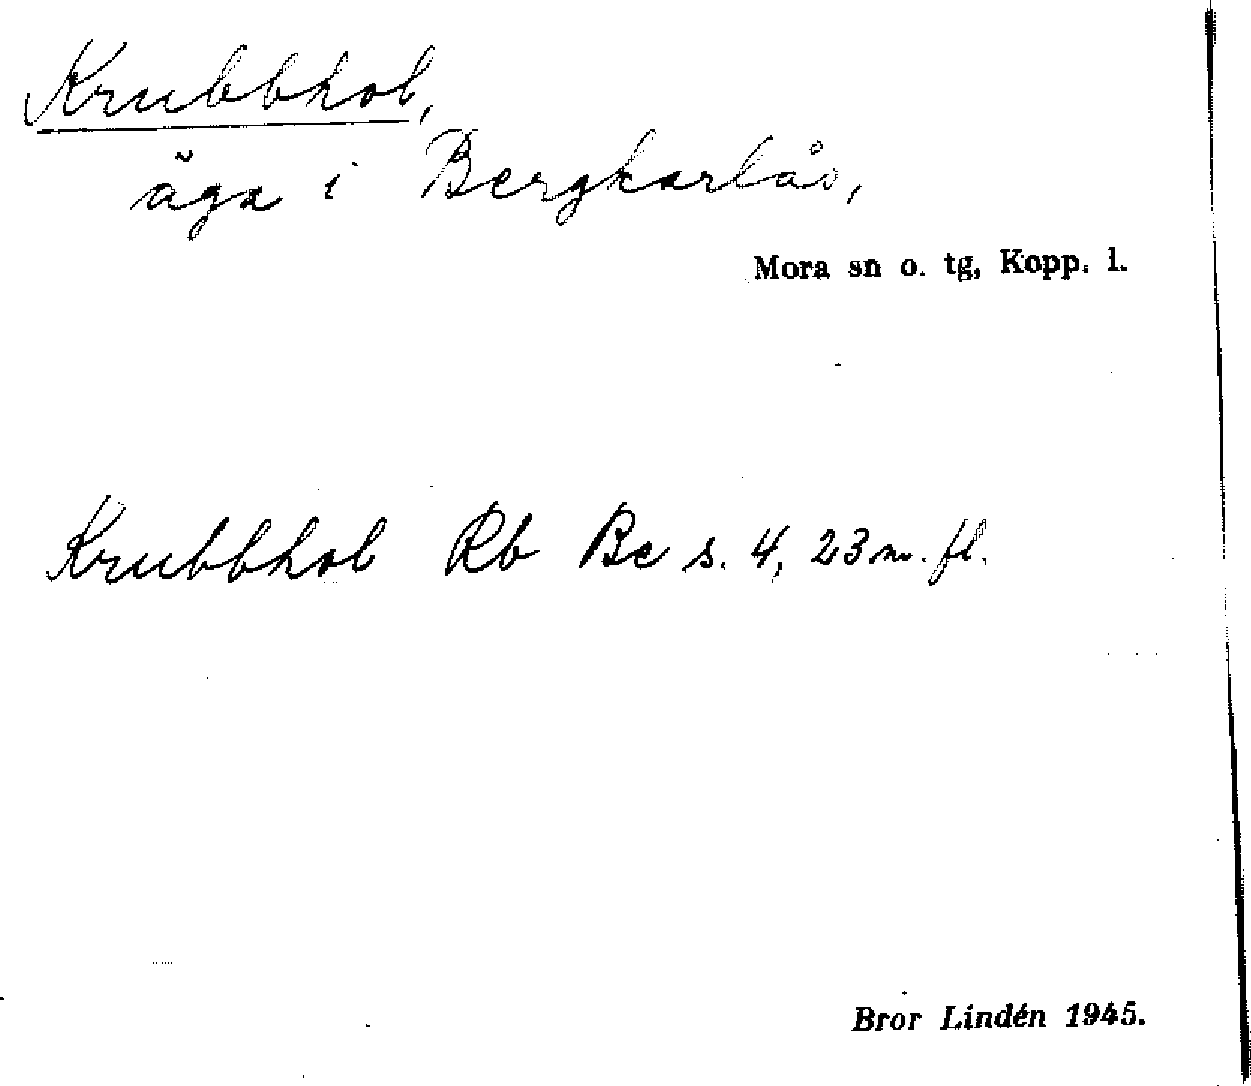 Krubbhol,
äga i Bergkarlås,
Mora sn o. tg, Kopp. l.
Krubbhol Rb Bc s. 4, 23 m. fl.
Bror Lindén 1945.